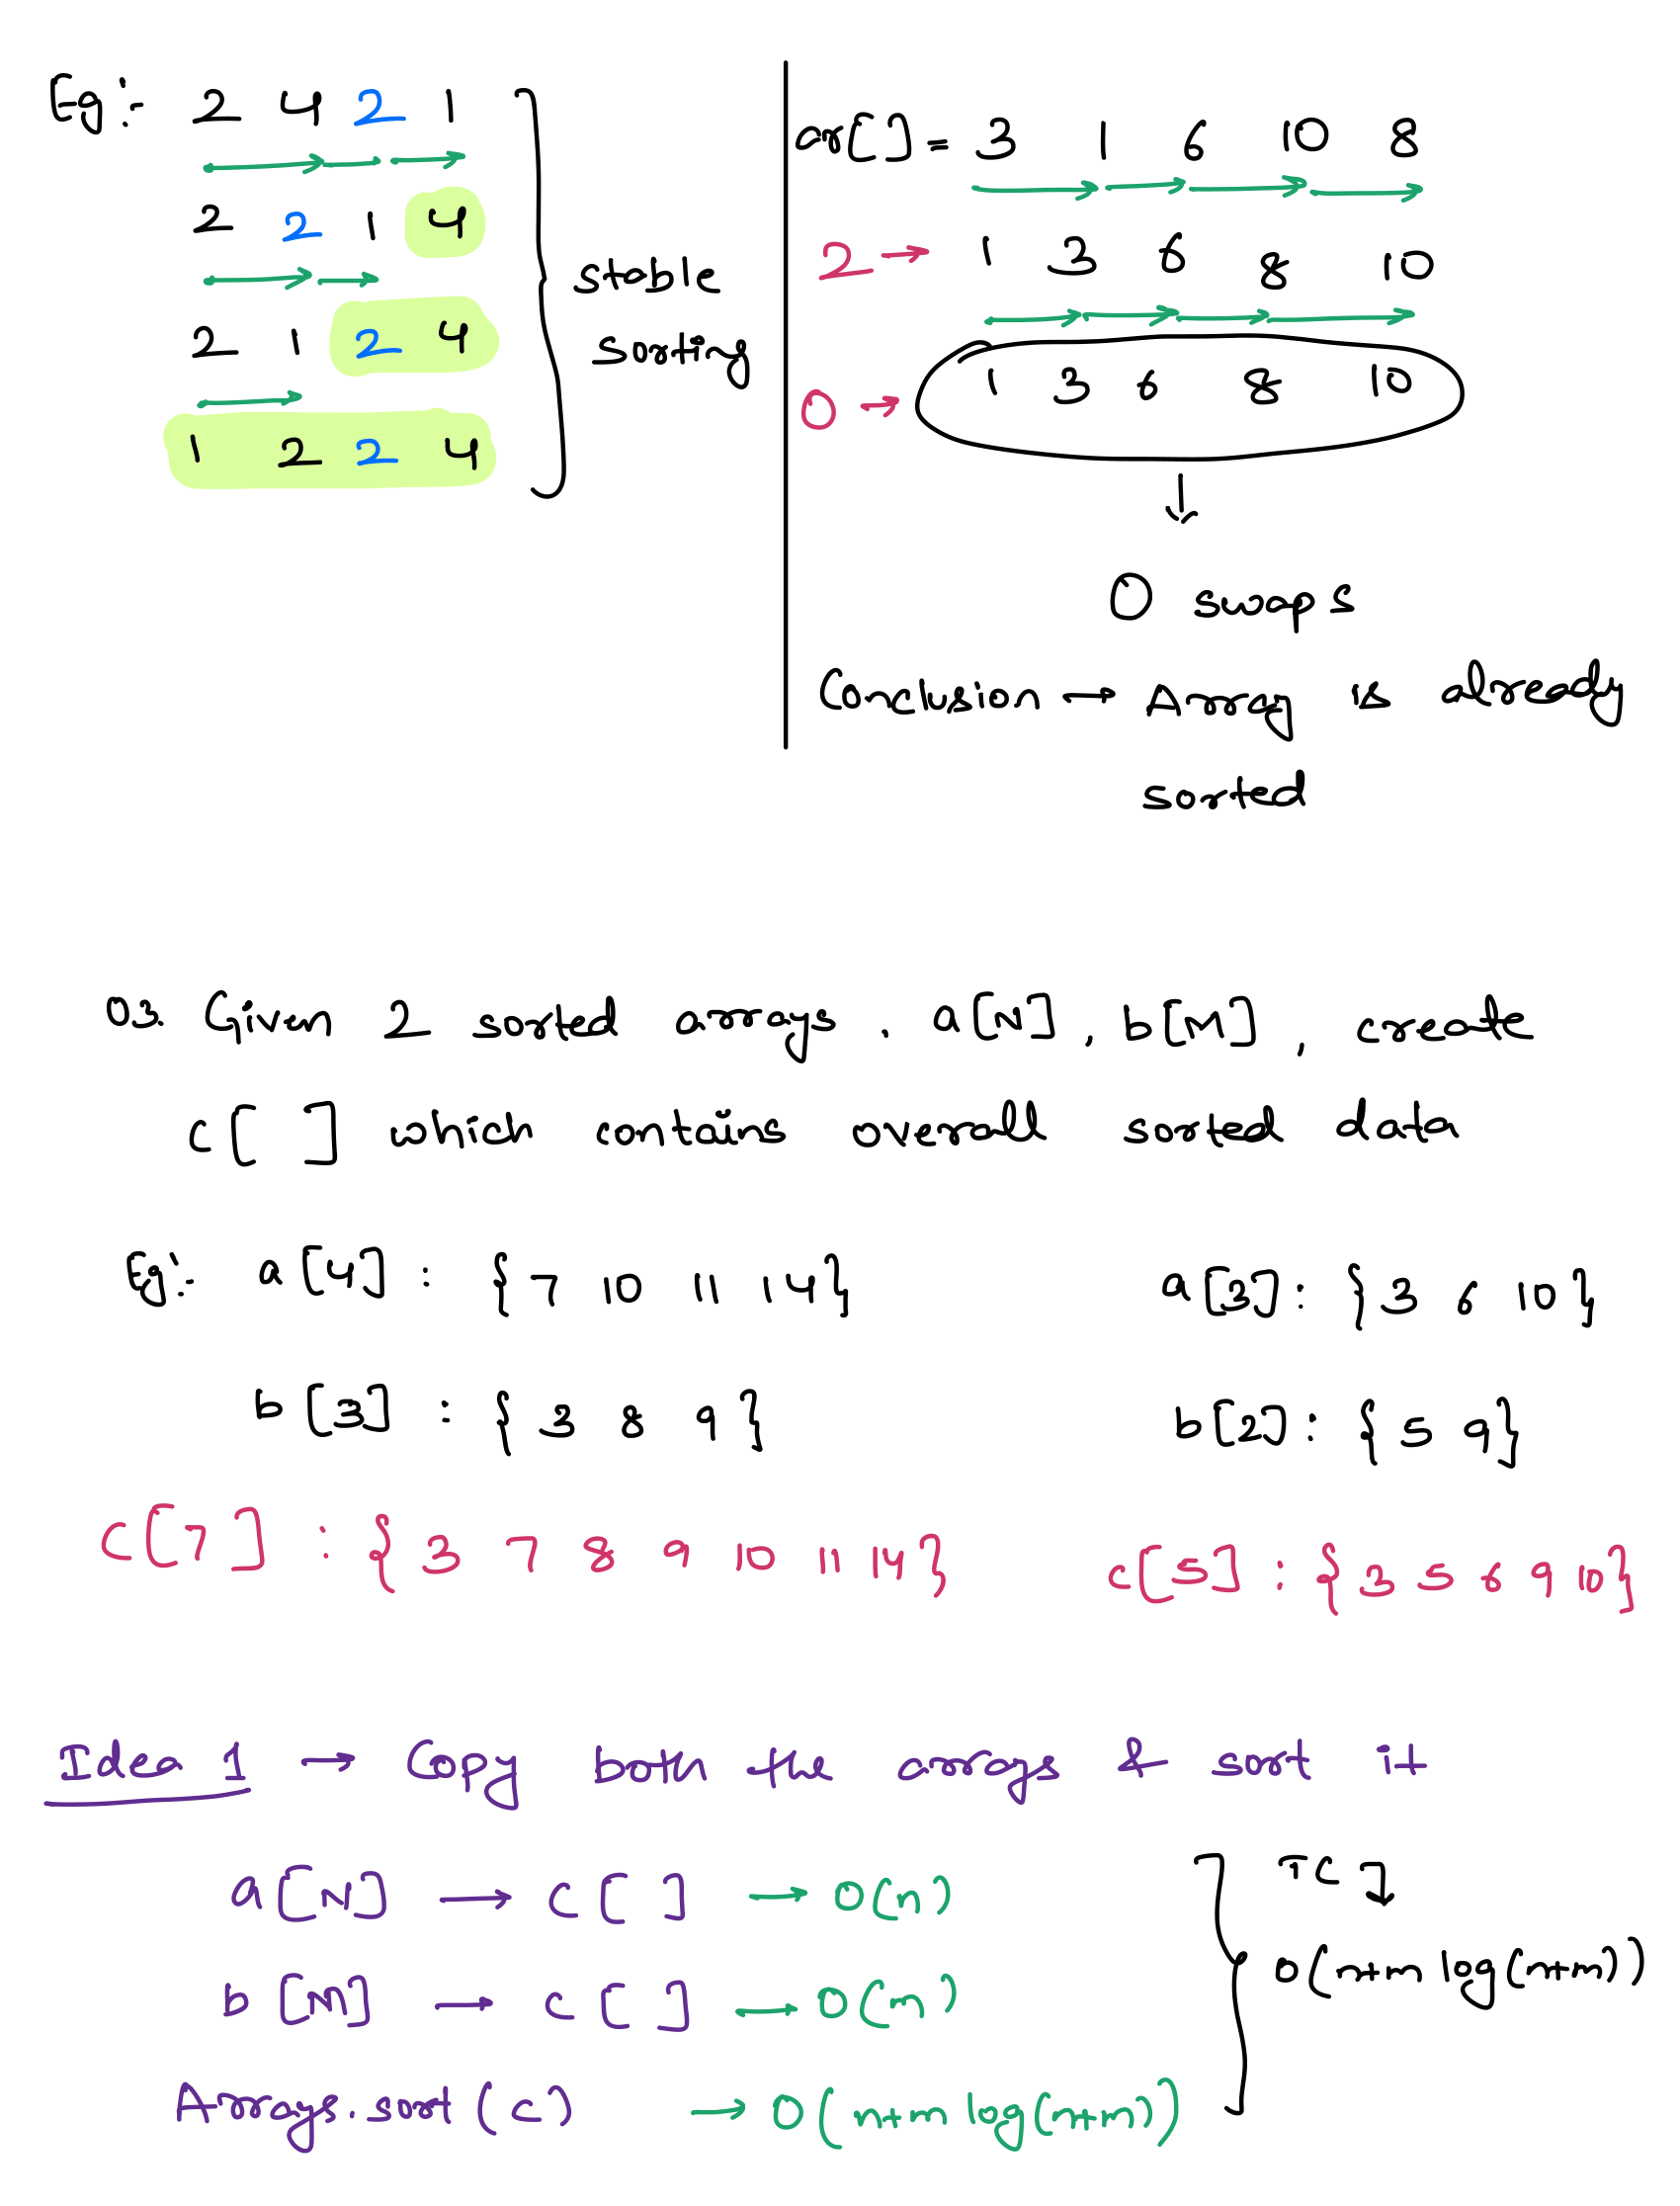 Eg:- 2 4 2 1
2 2 1 4
2 1 2 4
1 2 2 4
stable
sorting
ar[] = 3 1 6 10 8
2 → 1 3 6 8 10
0 → 1 3 6 8 10
↓
0 swaps
Conclusion → Array is already
sorted
03. Given 2 sorted arrays. a[N], b[M], create
c[ ] which contains overall sorted data
Eg:- a[4] : {7 10 11 14}
b[3] : {3 8 9}
c[7] : {3 7 8 9 10 11 14}
a[3]: {3 6 10}
b[2]: {5 9}
c[5] : {3 5 6 9 10}
Idea 1 → Copy both the arrays & sort it
a[N] → c[ ] → O(n)
b[M] → c[ ] → O(m)
Arrays.sort(c) → O(n+m log(n+m))
TC ↓
O(n+m log(n+m))